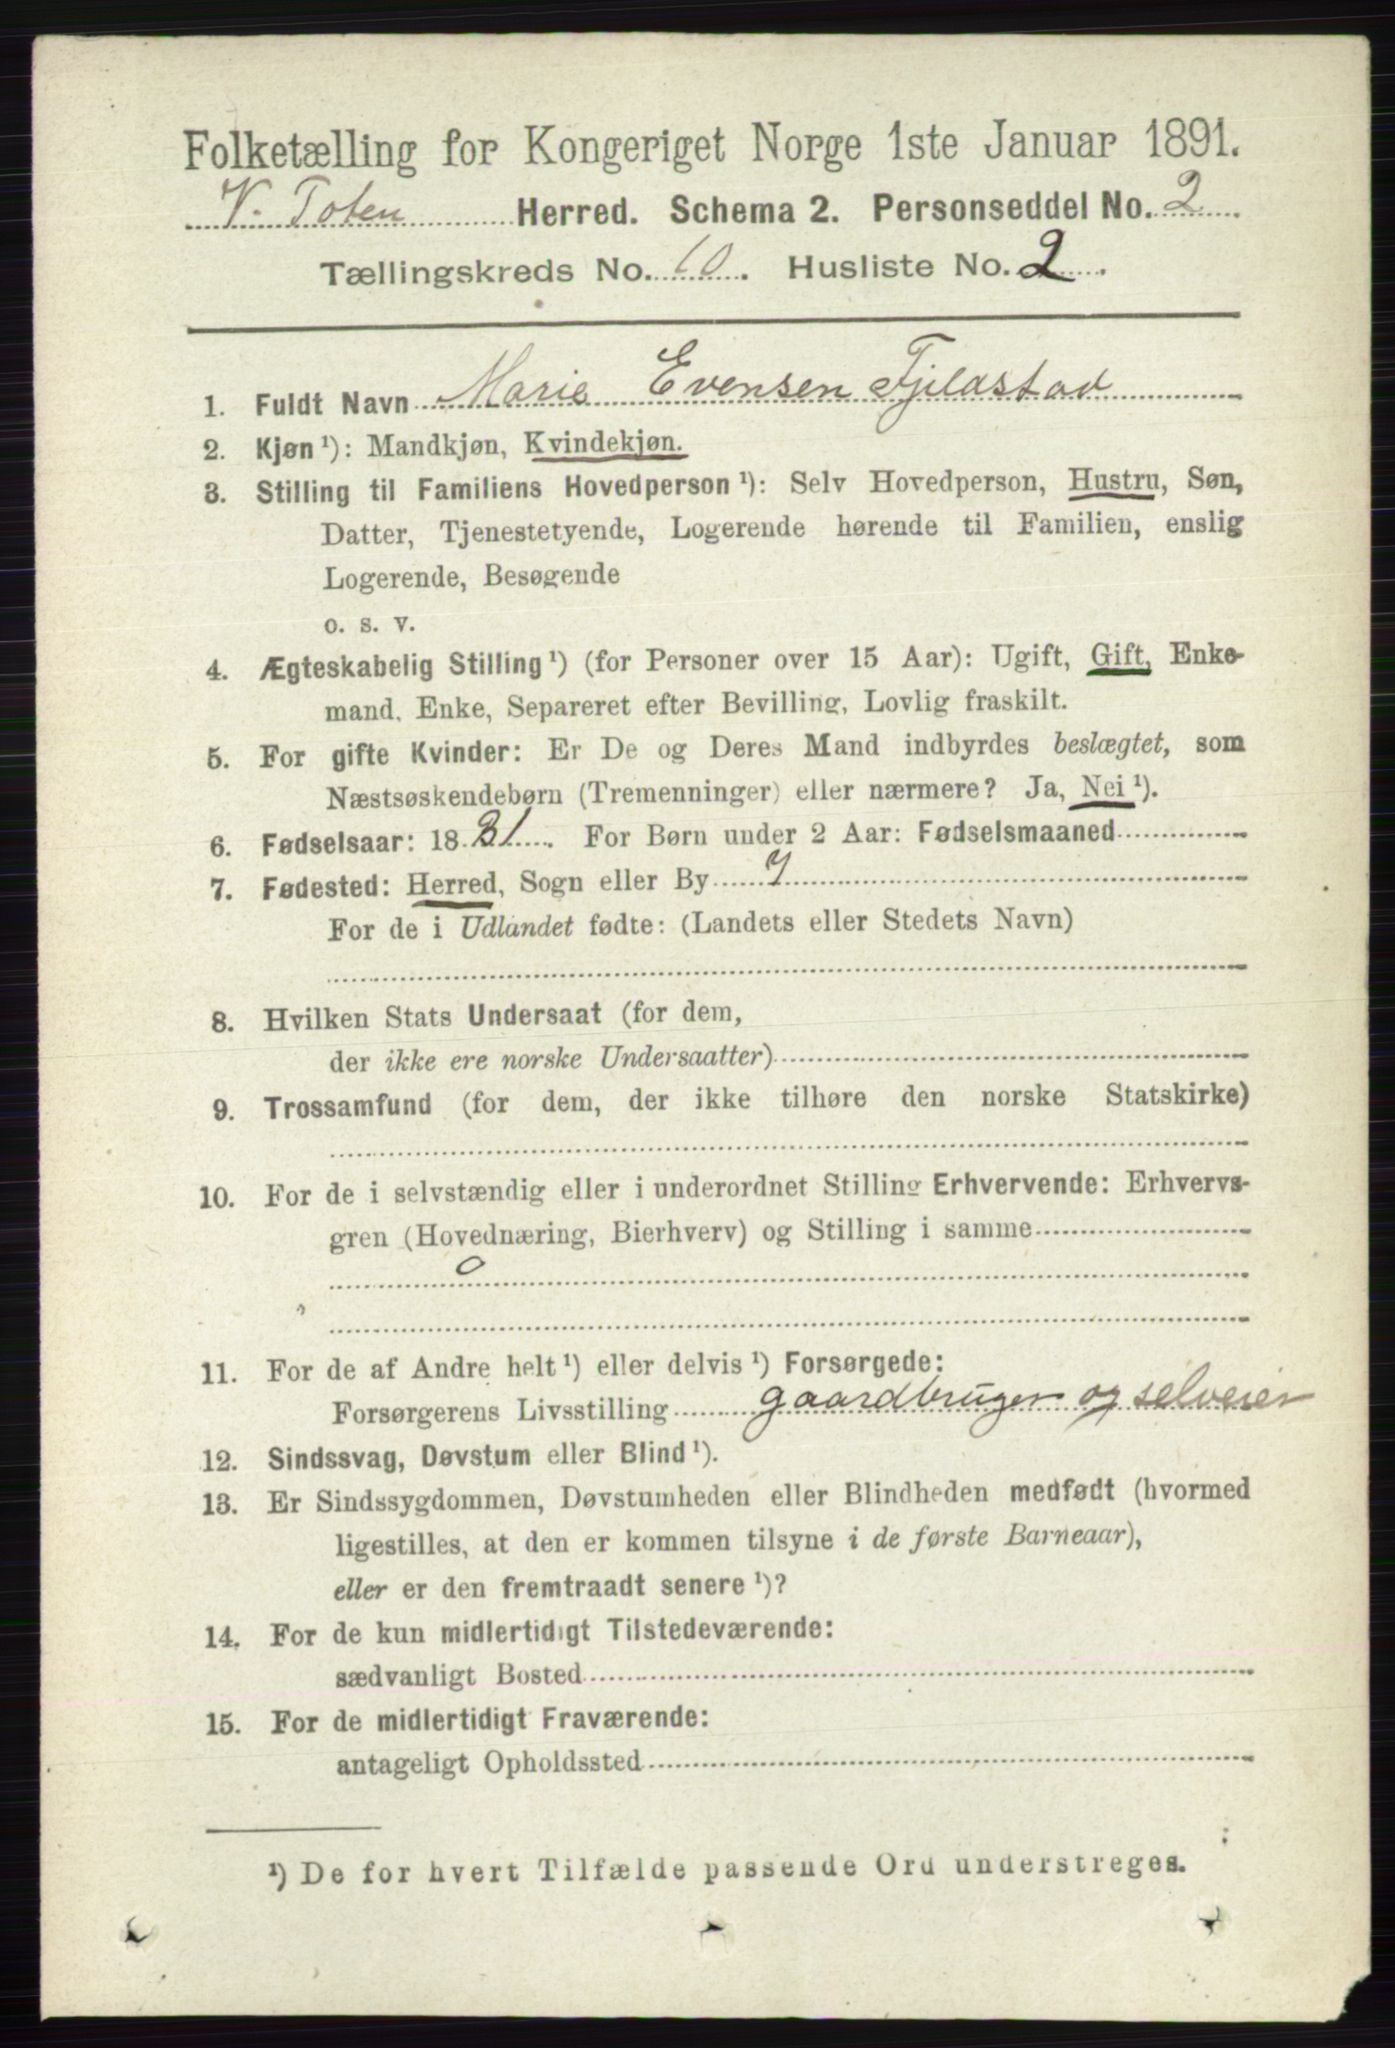 Folketælling for Kongeriget Norge 1ste Januar 1891.
V. Toten Herred. Schema 2. Personseddel No. 2
Tællingskreds No. 10. Husliste No. 2.
1. Fuldt Navn Marie Evensen Fjeldstad
2. Kjøn ¹): Mandkjøn, Kvindekjøn.
3. Stilling til Familiens Hovedperson ¹): Selv Hovedperson, Hustru, Søn,
Datter, Tjenestetyende, Logerende hørende til Familien, enslig
Logerende, Besøgende
o. s. v.
4. Ægteskabelig Stilling ¹) (for Personer over 15 Aar): Ugift, Gift, Enke-
mand, Enke, Separeret efter Bevilling, Lovlig fraskilt.
5. For gifte Kvinder: Er De og Deres Mand indbyrdes beslægtet, som
Næstsøskendebørn (Tremenninger) eller nærmere? Ja, Nei ¹).
6. Fødselsaar: 18 31. For Børn under 2 Aar: Fødselsmaaned
7. Fødested: Herred, Sogn eller By
For de i Udlandet fødte: (Landets eller Stedets Navn)
8. Hvilken Stats Undersaat (for dem,
der ikke ere norske Undersaatter)
9. Trossamfund (for dem, der ikke tilhøre den norske Statskirke)
10. For de i selvstændig eller i underordnet Stilling Erhvervende: Erhvervs-
gren (Hovednæring, Bierhverv) og Stilling i samme
0
11. For de af Andre helt ¹) eller delvis ¹) Forsørgede:
Forsørgerens Livsstilling gaardbruger og selveier
12. Sindssvag, Døvstum eller Blind ¹).
13. Er Sindssygdommen, Døvstumheden eller Blindheden medfødt (hvormed
ligestilles, at den er kommen tilsyne i de første Barneaar),
eller er den fremtraadt senere ¹)?
14. For de kun midlertidigt Tilstedeværende:
sædvanligt Bosted
15. For de midlertidigt Fraværende:
antageligt Opholdssted
¹) De for hvert Tilfælde passende Ord understreges.